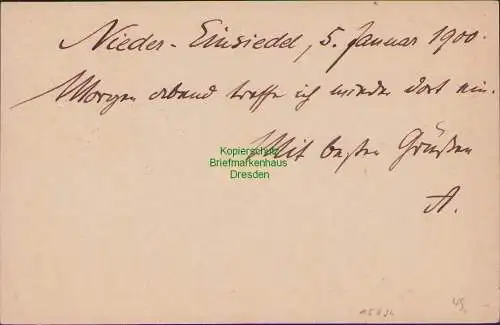 Nieder-Einsiedel, 5. Januar 1900.
Morgen abend treffe ich wieder dort ein.
Mit besten Grüßen
A.
Kopierschutz
Briefmarkenhaus
Dresden